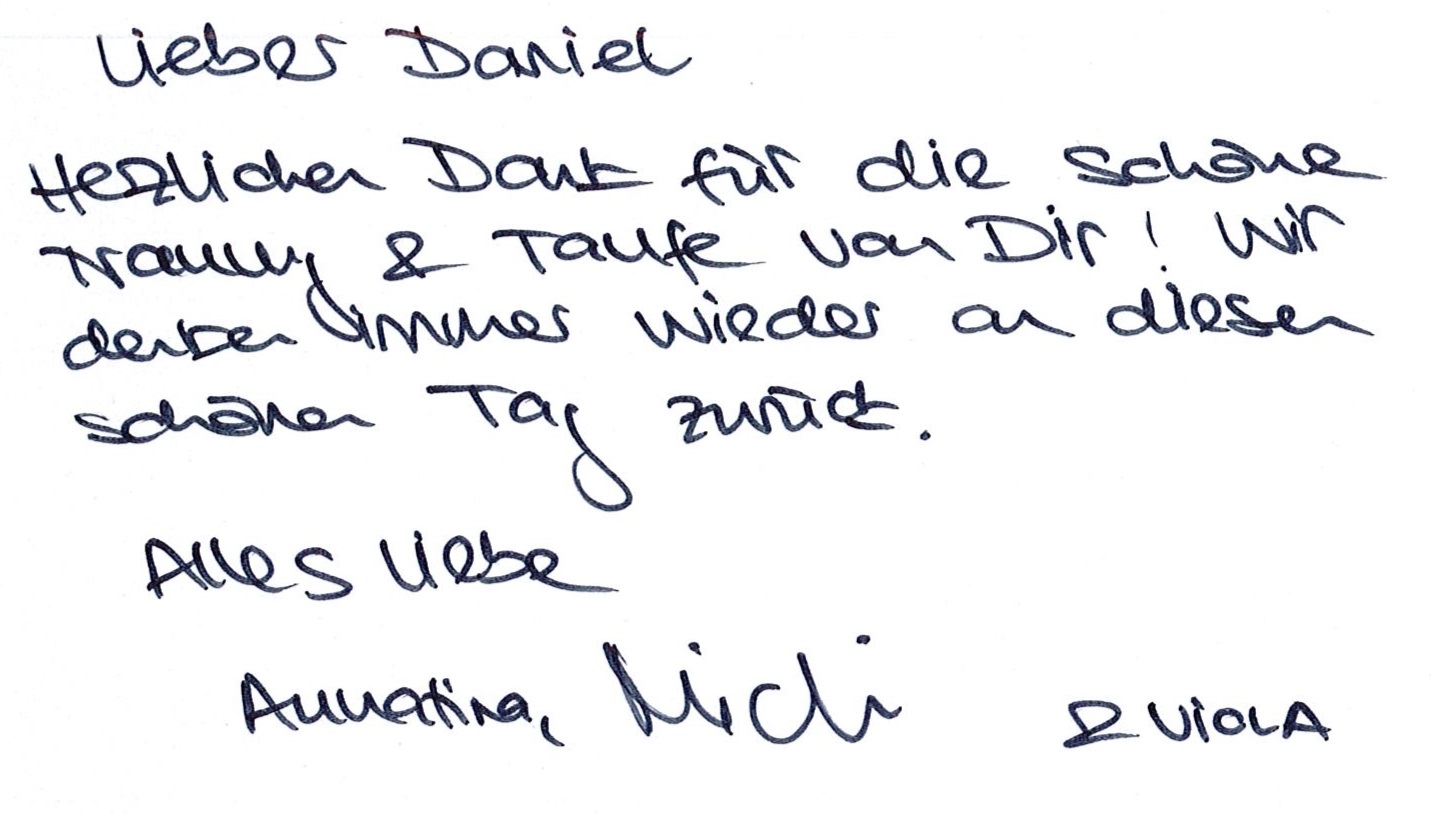 Lieber Daniel
Herzlichen Dank für die schöne
Trauung & Taufe von Dir! Wir
denken immer wieder an diesen
schönen Tag zurück.
Alles Liebe
Annatina, Michi & VIOLA